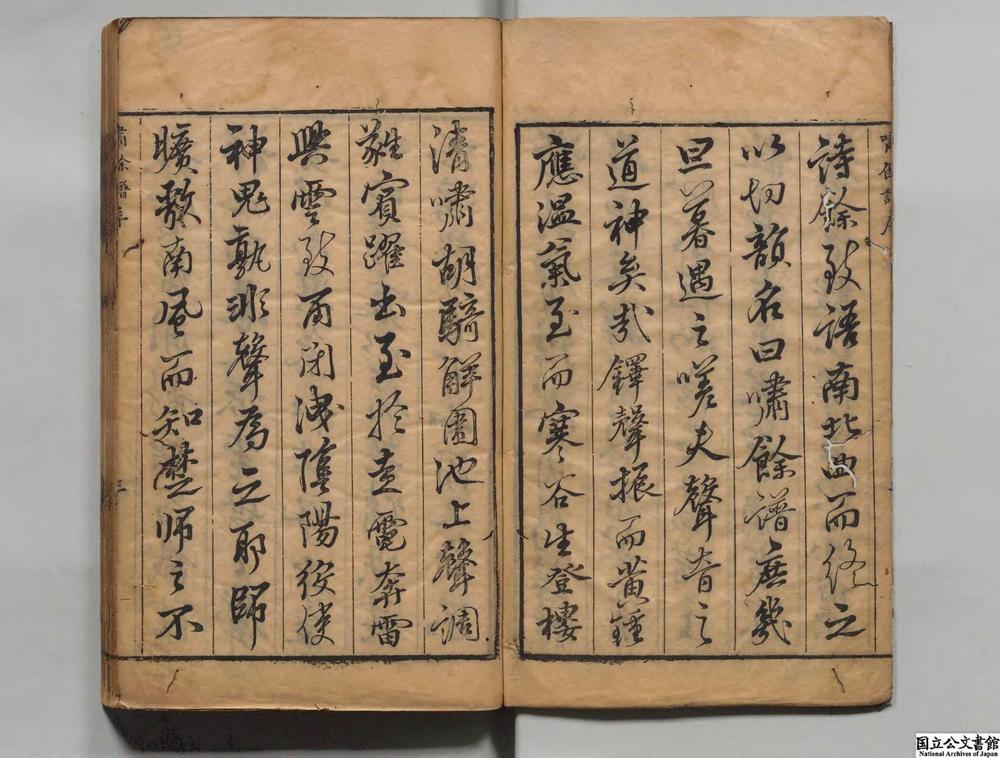 詩餘致語南北曲而終之
以切韻名曰嘯餘譜庶幾
旦暮遇之嗟夫聲音之
道神矣哉鐸聲振而黃鍾
應溫氣至而寒谷生登樓
清嘯胡騎解圍池上聲調
蕤賓躍出至於走電奔雷
興雲致雨閉洩陰陽役使
神鬼孰非聲為之耶師
曠歌南風而知楚師之不
嘯餘譜序
三
国立公文書館
National Archives of Japan